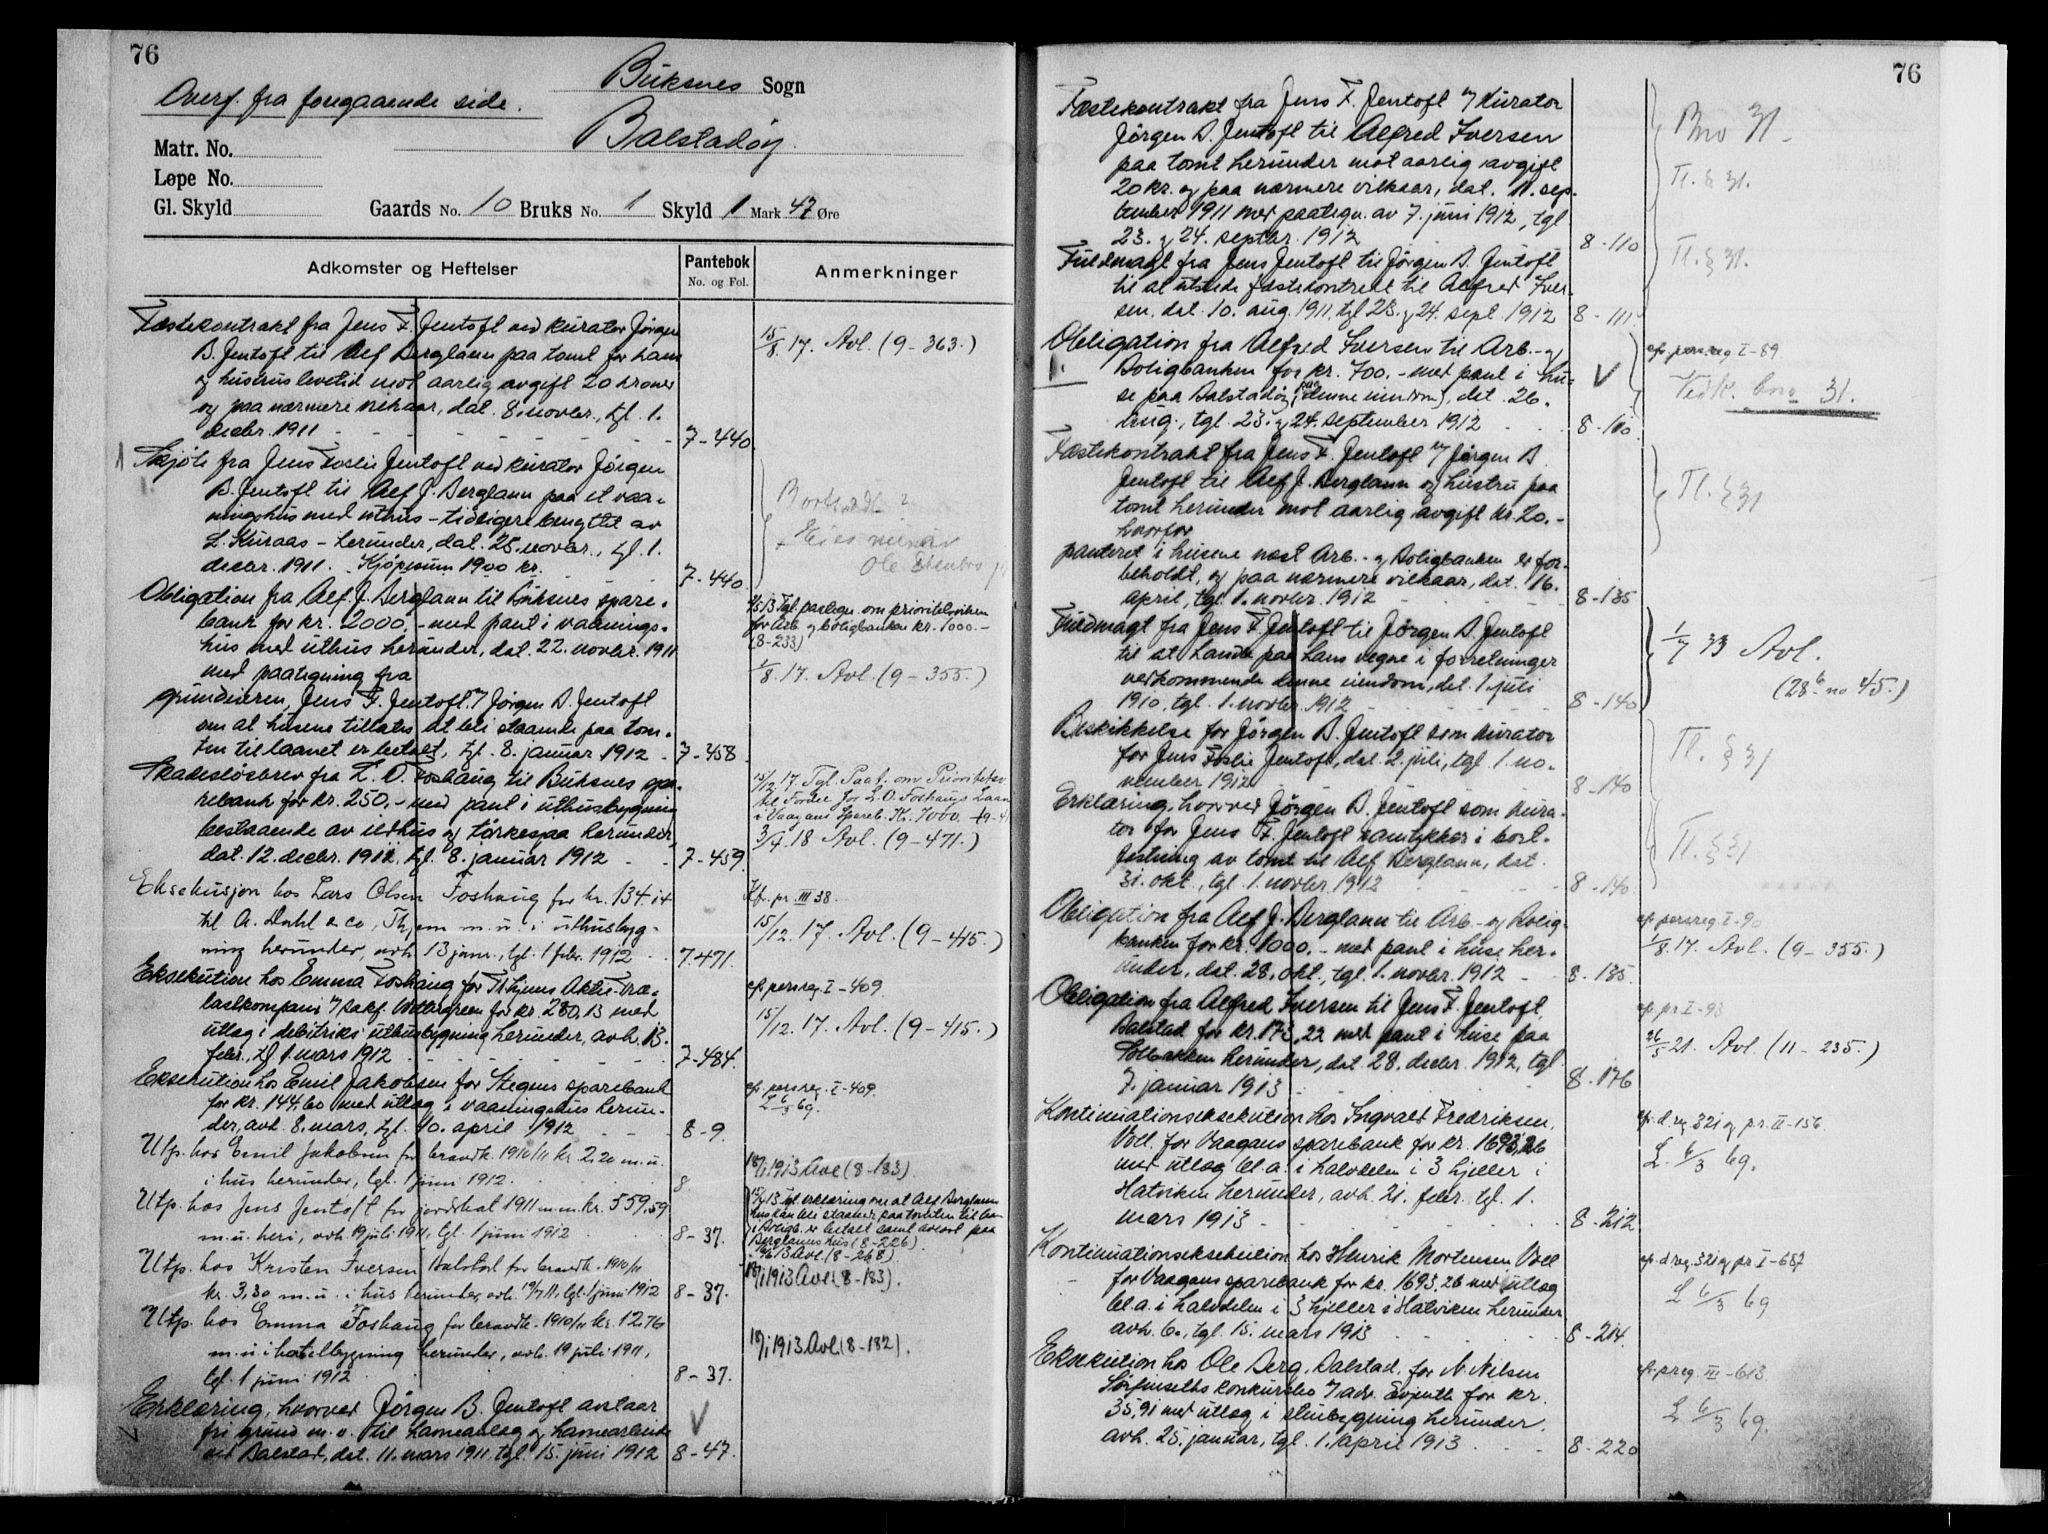 76
Buksnes Sogn
Overf. fra foregaaende side.
Balstadøy
Matr. No.
Løpe No.
Gl. Skyld
Gaards No. 10 Bruks No. 1 Skyld 1 Mark 47 Øre
Adkomster og Heftelser
Pantebok
No. og Fol.
Anmerkninger
Fæstekontrakt fra Jens F. Jentoft ved kurator Jørgen
B. Jentoft til Alf Berglann paa tomt for ham
og hustrus levetid mot aarlig avgift 20 kroner
og paa nærmere vilkaar, dat. 8. novbr., tgl. 1.
decbr. 1911 7-440
15/8. 17. Avl. (9-363.)
Skjøte fra Jens Foslie Jentoft ved kurator Jørgen
B. Jentoft til Alf J. Berglann paa et vaa-
ningshus med uthus - tidligere benyttet av
L. Kuraas - herunder, dat. 25. novbr., tgl. 1.
decbr. 1911. Kjøpesum 1900 kr. 7-440
Ole
Obligation fra Alf J. Berglann til Buksnes spare-
bank for kr. 2000,- med pant i vaanings-
hus med uthus herunder, dat. 22. novbr. 1911
med paategning fra
grundeieren, Jens F. Jentoft v/ Jørgen B. Jentoft
om at husene tillates at bli staaende paa tom-
ten til laanet er betalt, tgl. 8. januar 1912 - 7-458
13 Tgl. paategn. om prioritetsviken
for Arb. og boligbanken kr. 1000.-
(8-233)
1/8. 17. Avl. (9-355.)
Skadesløsbrev fra L. O. Foshaug til Buksnes spa-
rebank for kr. 250,- med pant i uthusbygning
bestaaende av ildhus og tørkespaa herunder,
dat. 12. decbr. 1911, tgl. 8. januar 1912 - - 7-459.
15/12. 17 Tgl. Paat. om Prioritetsv.
til Fordel for L. O. Foshaugs Laan
i Vaagans Spareb. Kr. 7000.
3/4. 18 Avl. (9-471.)
Eksekusjon hos Lars Olsen Foshaug for kr. 134.14
til A. Dahl & co, Th,em m.u. i uthusbyg-
ning herunder, avh. 13 janr., tgl. 1 febr. 1912 - - 7.471.
Kfr. pr. III 38.
15/12. 17. Avl. (9-415.)
Eksekution hos Emma Foshaug for Th,hjems Aktie-Træ-
lastkompani v/ sakf. for kr. 280,13 med
utlæg i debitriks uthusbygning herunder, avh. 13.
febr., tgl 1. mars 1912 7-484.
cfr. persreg. I-409.
15/12. 17. Avl. (9-415.)
Eksekution hos Emil Jakobsen for Stegens sparebank
for kr. 144.60 med utlæg i vaaningshus herun-
der, avh. 8. mars, tgl. 10. april 1912 - - - 8-9.
cfr. persreg. I-409.
L 6/3 69.
Utp. hos Emil Jakobsen for brandk. 1910/11 kr. 2.20 m.u.
i hus herunder, tgl. 1 juni 1912. 8
18/1 1913 Avl (8-183).
Utp. hos Jens Jentoft for jordskat 1911 m.m. kr. 559.59
m.u. heri, avh. 19 juli 1911, tgl. 1 juni 1912 8-37.
13 tgl erklæring om at Alf Berglann
hus kan bli staaende paa tomten til laan
i Boligb. er betalt samt
Berglanns hus (8-226)
13 Avl. (8-268)
Utp. hos Kristen Iversen Balstad for brandk. 1910/11
kr. 3,30 m.u. i hus herunder avh. 19/7 11, tgl. 1 juni 1912 8-37.
18/1 1913 Avl (8-183).
Utp. hos Emma Foshaug for brandk. 1910/11 kr. 12.76
m.u. i hotelbygning herunder, avh. 19 juli 1911,
tgl. 1 juni 1912 8-37.
18/1 1913 Avl (8-182).
Erklæring, hvorved Jørgen B. Jentoft avstaar
fri grund m.v. til havneanlæg og havnearbeide
ved Balstad, dat. 11. mars 1911 tgl. 15. juni 1912 8-47.
76
Fæstekontrakt fra Jens F. Jentoft v/ kurator
Jørgen B. Jentoft til Alfred Iversen
paa tomt herunder mot aarlig avgift
20 kr. og paa nærmere vilkaar, dat. 11. sep-
tember 1911 med paategn. av 7. juni 1912, tgl
23. og 24. septbr. 1912 8-110
Bno 31
Tl. § 31.
Fuldmagt fra Jens Jentoft til Jørgen B. Jentoft
til at utstede fæstekontrakt til Alfred Iver-
sen. dat. 10. aug. 1911, tgl 23. og 24. sept. 1912 8-111
Tl. § 31.
Obligation fra Alfred Iversen til Arb.- og
Boligbanken for kr. 700.- med pant i hu-
se paa Balstadøy (paa denne eiendom), dat. 26.
aug., tgl. 23. og 24. september 1912 8-110
cfr. persreg I-89
Vedk. bno 31.
Fæstekontrakt fra Jens F. Jentoft v/ Jørgen B.
Jentoft til Alf J. Berglann og hustru paa
tomt herunder mot aarlig avgift kr. 20.-
hvorfor
panteret i husene næst Arb.- og Boligbanken er for-
beholdt, og paa nærmere vilkaar, dat. 16.
april, tgl. 1. novbr. 1912 8-135
Tl. § 31
Fuldmagt fra Jens F. Jentoft til Jørgen B. Jentoft
til at handle paa hans vegne i forretninger
vedkommende denne eiendom, dat. 1. juli
1910, tgl. 1. novbr. 1912 8-140
1/7 33 Avl.
(28 b no 45.)
Beskikkelse for Jørgen B. Jentoft som kurator
for Jens Foslie Jentoft, dat. 2. juli, tgl. 1. no-
vember 1912 8-140
Tl. § 31
Erklæring, hvorved Jørgen B. Jentoft som kura-
tor for Jens F. Jentoft samtykker i bort-
festning av tomt til Alf Berglann, dat.
31. okt., tgl. 1. novbr. 1912 8-140.
Tl. § 31
Obligation fra Alf J. Berglann til Arb.- og Bolig-
banken for kr. 1000.- med pant i huse her-
under, dat. 28. okt., tgl. 1. novbr. 1912 - 8-135.
cfr. persreg. I-90
1/8. 17. Avl. (9-355.)
Obligation fra Alfred Iversen til Jens F. Jentoft,
Balstad for kr. 173,22 med pant i huse paa
Solbakken herunder, dat. 28. decbr. 1912, tgl
7. januar 1913 8-176
cfr pr I-93
26/5 21. Avl. (11-235.)
Kontinuationseksekution hos Ingvald Fredriksen,
Voll. for Vaagans sparebank for kr. 1693,26
med utlæg bl.a. i halvdelen i 3 hjeller i
Hatviken herunder, avh. 21. febr. tgl. 1.
mars 1913 - 8-212
cfr. d.reg 321 og pr. II-156.
L. 6/3 69.
Kontinuationseksekution hos Henrik Mortensen Voll
for Vaagans sparebank for kr. 1693,26 med utlæg
bl.a. i halvdelen i 3 hjeller i Hatviken herunder
avh. 6., tgl. 15. mars 1913 8-214.
cfr. d.reg. 321 og pr. I-687
L 6/3 69
Eksekution hos Ole Berg, Balstad, for N. Nilsen
Sørfinseths konkursbo v/ adv. Evjenth for kr.
35,91 med utlæg i stenbygning herunder,
avh. 25. januar, tgl. 1. april 1913 8-220
cfr. preg. III-613.
L 6/3 69.